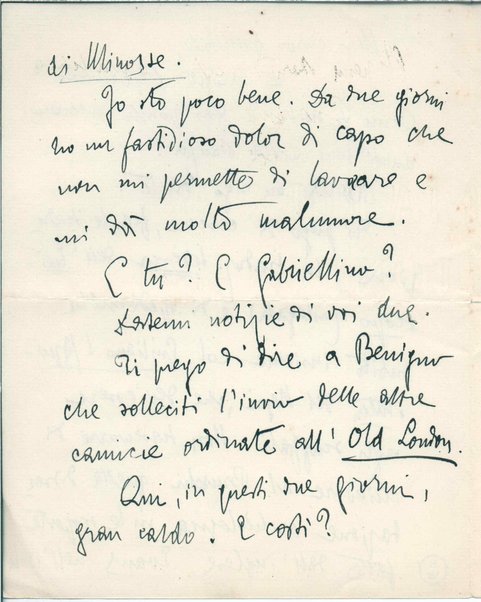 di Minosse.
Io sto poco bene. Da due giorni
ho un fastidioso dolor di capo che
non mi permette di lavorare e
mi dà molto malumore.
E tu? E Gabriellino?
Datemi notizie di voi due.
Ti prego di dire a Benigno
che solleciti l'invio delle altre
camicie ordinate all'Old London.
Qui, in questi due giorni,
gran caldo. E costì?